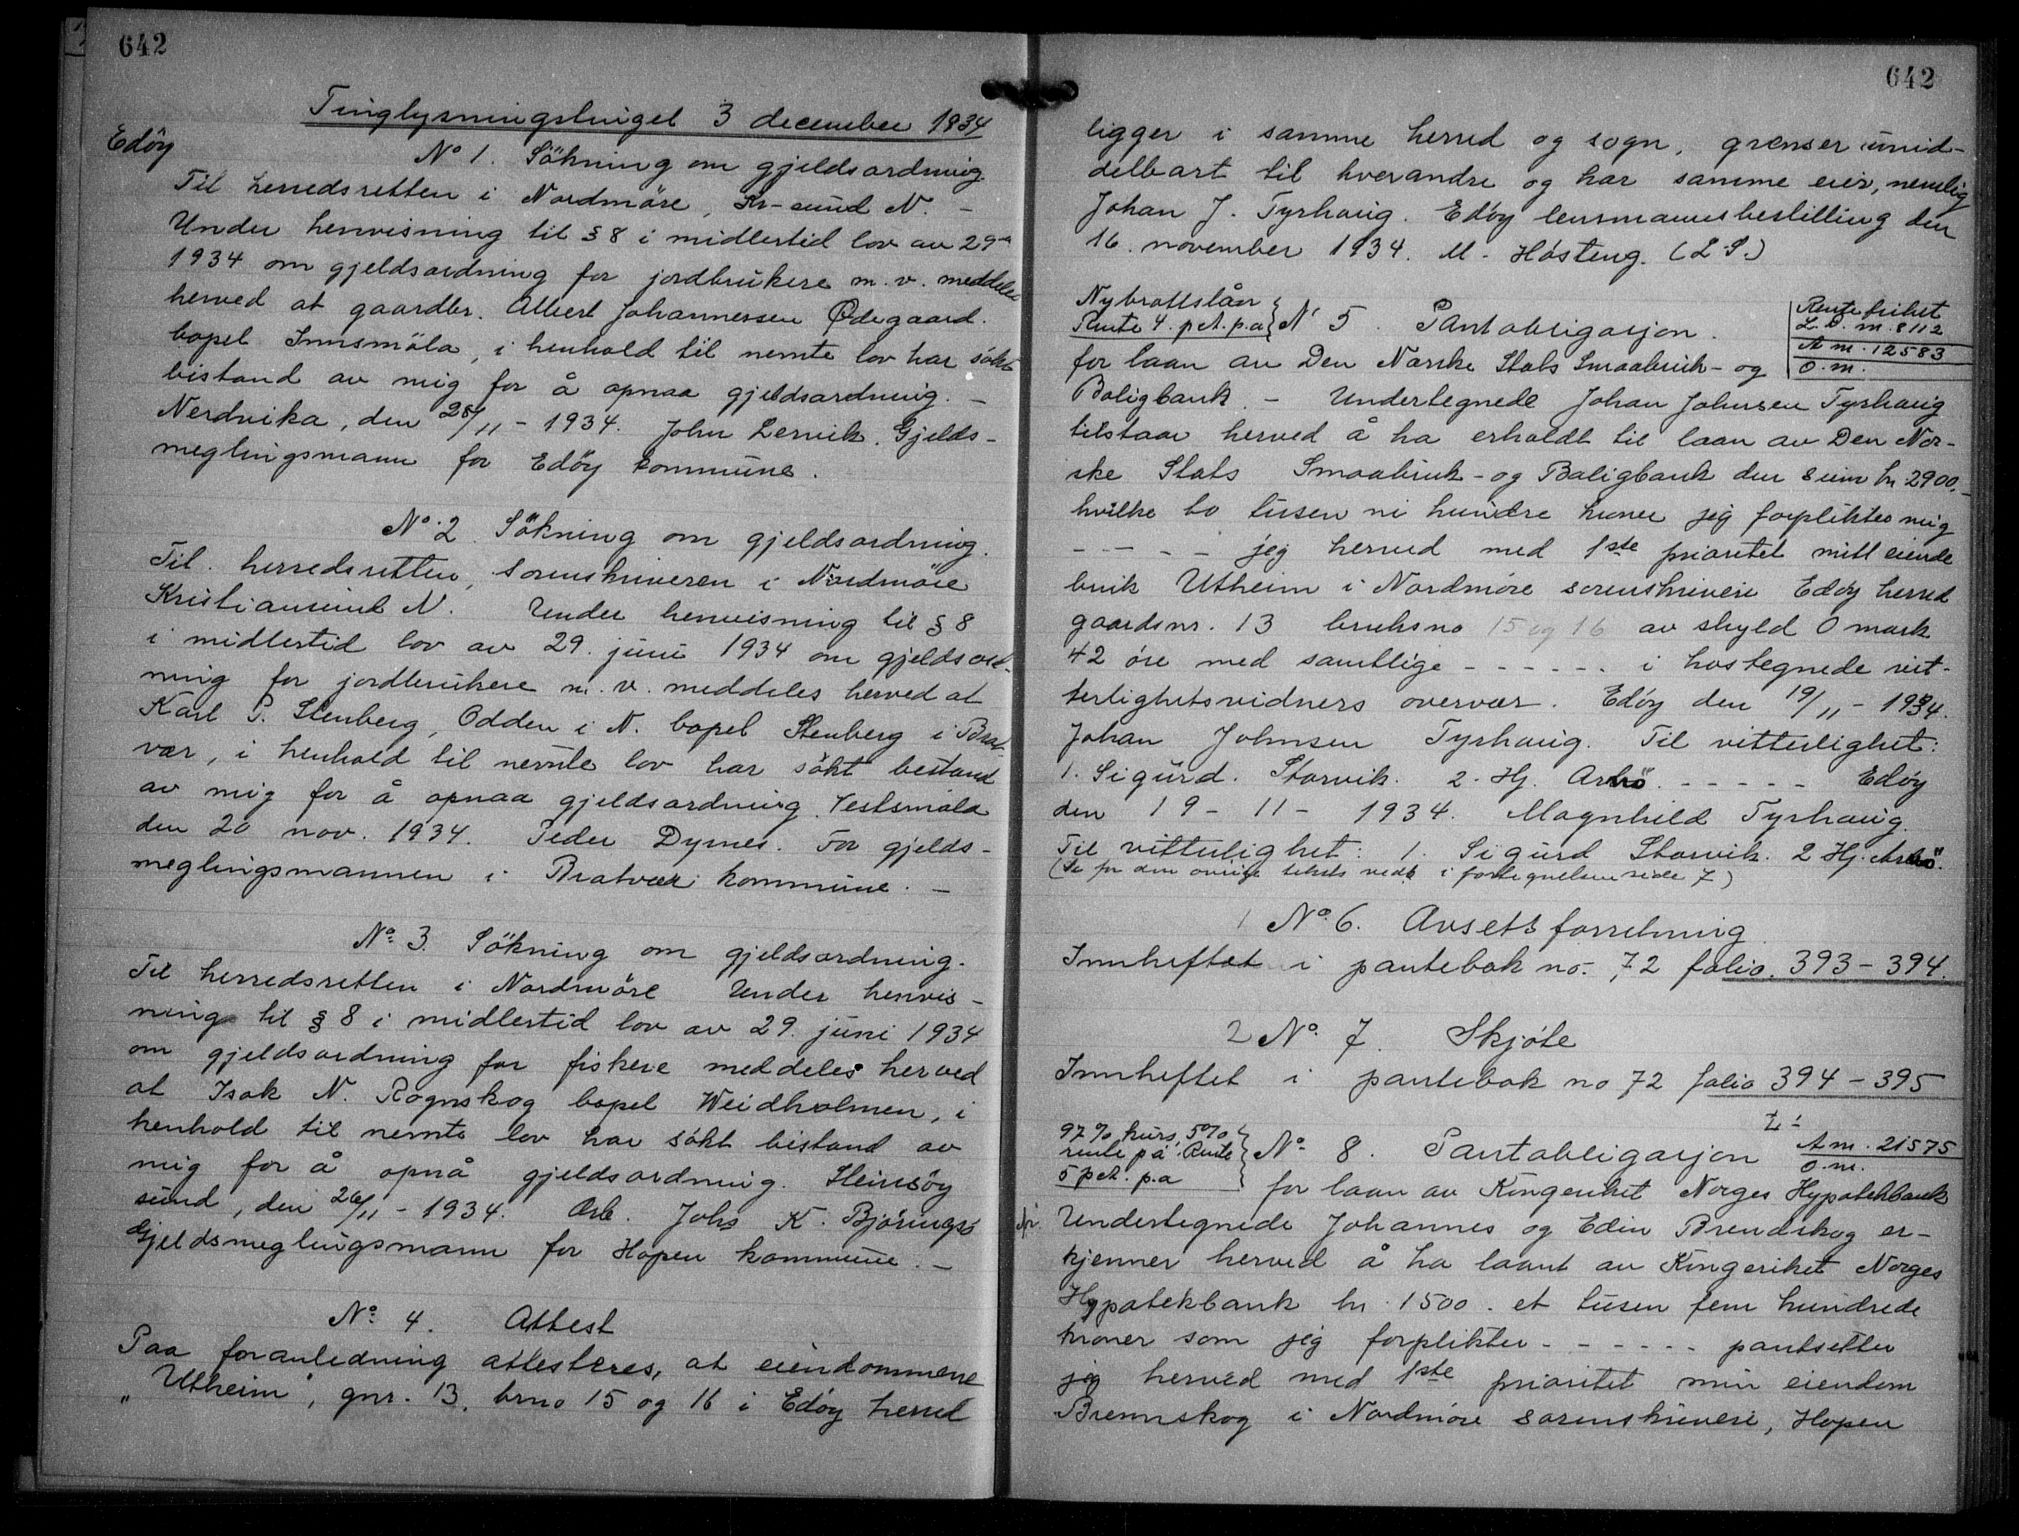 642
Tinglysningstinget 3 december 1934
Edöy
No 1. Sökning om gjeldsordning
Til herredsretten i Nordmöre, Kr-sund N. -
Under henvisning til § 8 i midlertid lov av 29
1934 om gjeldsordning for jordbrukere m. v. meddeles
herved at gaardbr. Albert Johannessen Ødegaard.
bopel Innsmöla, i henhold til nemte lov har sökt
bistand av mig for å opnaa gjeldsordning. -
Nerdvika, den 28/11 - 1934. John Lervik. Gjelds-
meglingsmann for Edöy kommune.
No 2. Sökning om gjeldsordning.
Til herredsretten, sorenskriveren i Nordmöre
Kristiansund N. Under henvisning til § 8
i midlertid lov av 29. juni 1934 om gjeldsord-
ning for jordbrukere m. v. meddeles herved at
Karl P. Stenberg, Odden i N. bopel Stenberg i Brat-
vær, i henhold til nemte lov har sökt bestand
av mig for å opnaa gjeldsordning. Vestsmöla
den 20 nov. 1934. Peder Dyrnes. For gjelds-
meglingsmannen i Bratvær kommune. -
No 3. Sökning om gjeldsordning.
Til herredsretten i Nordmöre Under henvis-
ning til § 8 i midlertid lov av 29. juni 1934
om gjeldsordning for fiskere meddeles herved
at Isak N. Rognskog bopel Weidholmen, i
henhold til nemte lov har sökt bistand av
mig for å opnå gjeldsordning. Steinsöy
sund, den 26/11 - 1934. Johs K. Björingsö
Gjeldsmeglingsmann for Hopen kommune. -
No 4. Attest
Paa foranledning attesteres, at eiendommene
"Utheim", gnr. 13, brno 15 og 16 i Edöy herred
642
ligger i samme herred og sogn, grenser umid-
delbart til hverandre og har samme eier, nemlig
Johan J. Tyrhaug. Edöy lensmannsbestilling den
16. november 1934. M. Hösteng. (L.S.)
Nybrottslån
Rente 4. pct. p.a } No 5. Pantobligasjon.
Rentefrihet
L. D. m. 8112
A m. 12583
O. m.
for laan av Den Norske Stats Smaabruk- og
Boligbank. - Undertegnede Johan Johnsen Tyrhaug
tilstaar herved å ha erholdt til laan av Den Nor-
ske Stats Smaabruk- og Boligbank den sum kr 2900.-
hvilke to tusen ni hundre kroner jeg forplikter mig
- - - - jeg herved med 1ste prioritet mitt eiende
bruk Utheim i Nordmöre sorenskriveri Edöy herred
gaardsnr. 13 bruksno 15 og 16 av skyld 0 mark
42 öre med samtlige - - - - - - i hostegnede vit-
terlighetsvidners overvær. Edöy den 19/11 - 1934.
Johan Johnsen Tyrhaug. Til vitterlighet:
1. Sigurd Storvik. 2. Hj. - - - - - Edöy
den 19 - 11 - 1934. Magnhild Tyrhaug.
Til vitterlighet: 1. Sigurd Storvik. 2 Hj.
(Se for den övrige tekst vedk i fortegnelsen side 7)
1 No 6. Avsettsforretning
Innheftet i pantebok no. 72 folio. 393 - 394.
2 No 7. Skjöte
Innheftet i pantebok no 72 folio 394 - 395
97 % kurs, 5 %
rente på Rente
5 pct. p.a } No 8. Pantobligasjon
A m. 21575
O. m.
for laan av Kongeriket Norges Hypotekbank
Undertegnede Johannes og Edin Brendskog er-
kjenner herved å ha laant av Kongeriket Norges
Hypotekbank kr. 1500. et tusen fem hundrede
kroner som jeg forplikter - - - - - - pantsetter
jeg herved med 1ste prioritet min eiendom
Brennskog i Nordmöre sorenskriveri, Hopen